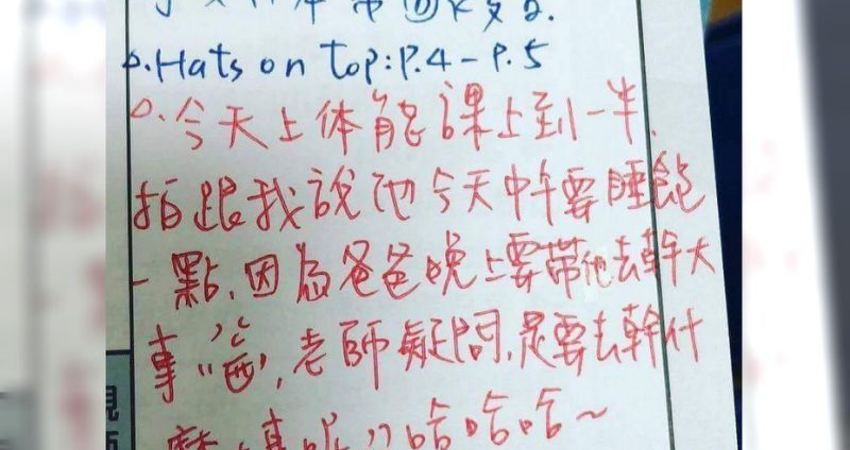 帶回
△.Hats on Top:P.4-P.5
△.今天上体能課上到一半,
跟我說他今天中午要睡飽
一點,因為爸爸晚上要帶他去幹大
事,老師疑問,是要去幹什
呢哈哈哈~